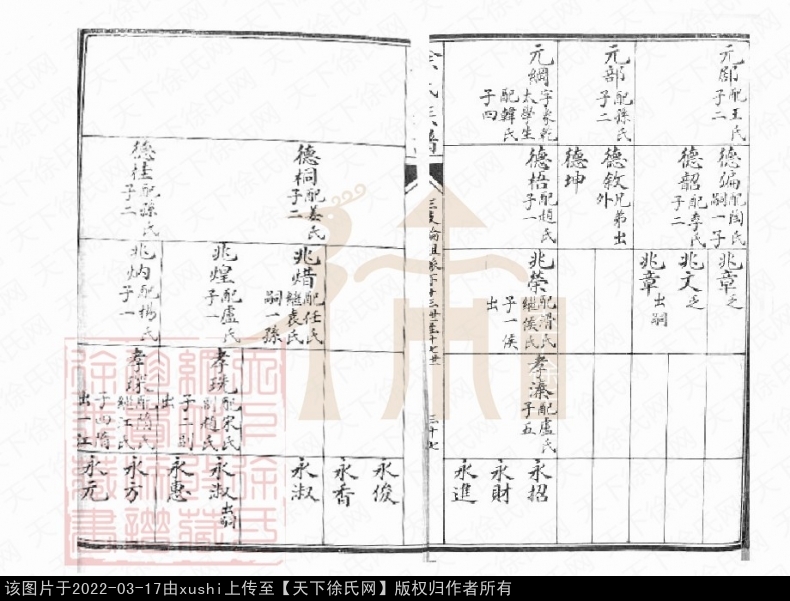 元郎 配王氏 子二
元部 配孫氏 子二
元綱 字家乾 太學生 配韓氏 子四
德煸 配陶氏 嗣一子
德韶 配李氏 子二
德敘 兄弟出外
德坤
德梧 配趙氏 子一
兆章 乏
兆文 乏
兆章 出嗣
兆榮 配滑氏 繼侯氏 子一侯出
孝濂 配盧氏 子五
永招
永財
永進
三十七
德桐 配姜氏 子二
德桂 配孫氏 子二
兆焟 配任氏 繼袁氏 嗣一孫
兆煌 配盧氏 子一
兆炳 配楊氏 子一
孝珗 配宋氏 副趙氏 子二副出
孝球 配隋氏 繼江氏 子四隋出一江
永俊
永香
永淑
永淑 出嗣
永惠
永方
永元
该图片于2022-03-17由xushi上传至【天下徐氏网】版权归作者所有